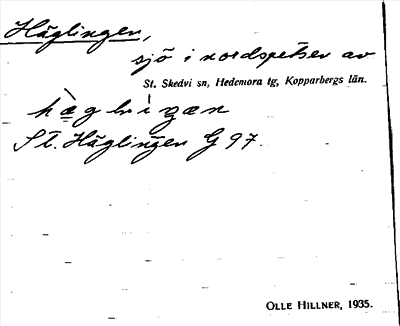 Häglingen,
sjö i nordspetsen av
St. Skedvi sn, Hedemora tg, Kopparbergs län.
St. Häglingen G 97.
OLLE HILLNER, 1935.